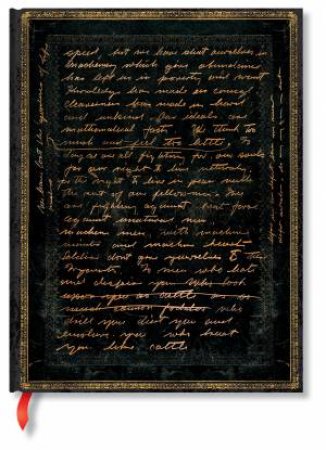 speed, but we have shut ourselves in
machinery which gives abundance
has left us in poverty and want
Knowledge has made us cynical
cleverness has made us hard
and unkind. Our ideals are
mathematical facts. We think too
much and feel too little. 
as we all fighting for our souls
for our right to live naturally
for the right to live in peace with
the rest of our fellowmen. We
are fighting against brut force
against unnatural men
machine men with machine
minds and machine hearts
Soldiers dont give yourselves to the
Tyrants. To men who hate
and despise you who look
upon you as cattle as
cannon fodder who
drill you diet you and
enslave you who treat
you like cattle
We have lost the